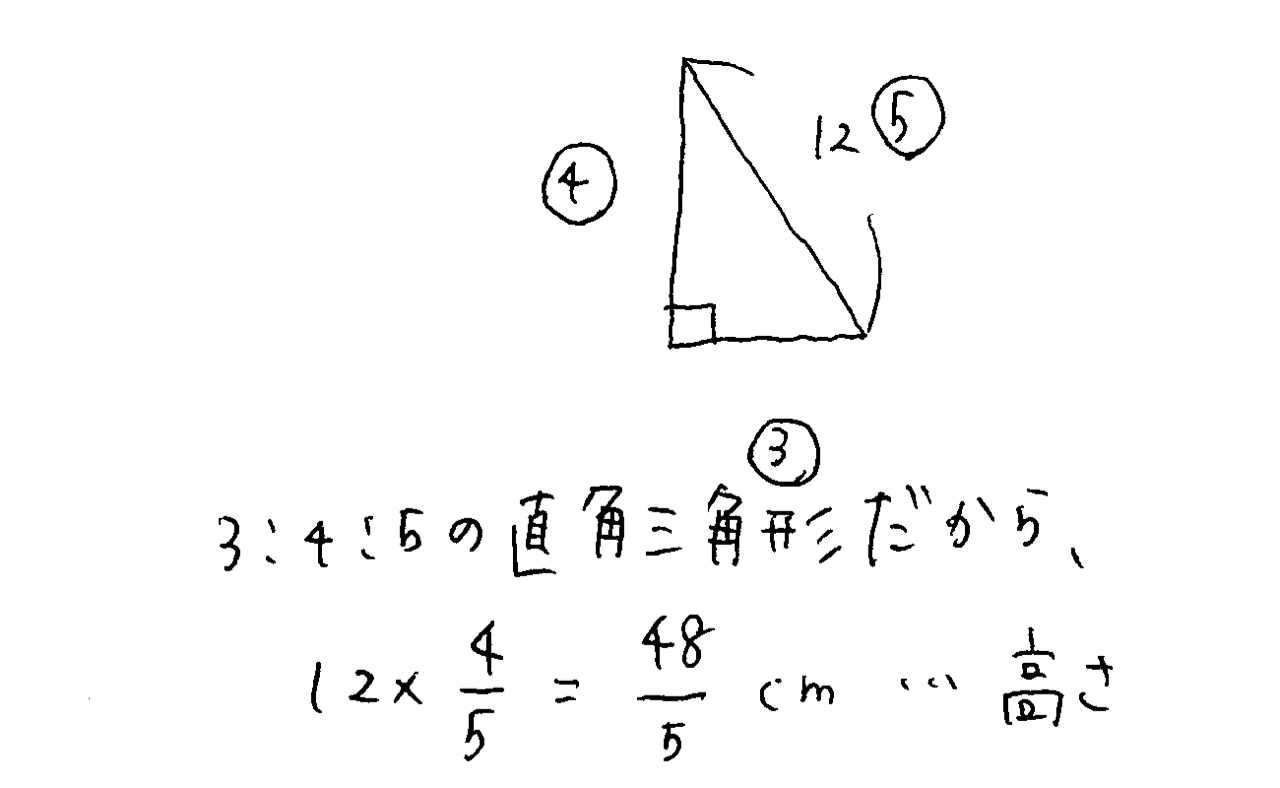 12 ⑤
④
③
3:4:5の直角三角形だから、
12×4/5=48/5cm…高さ